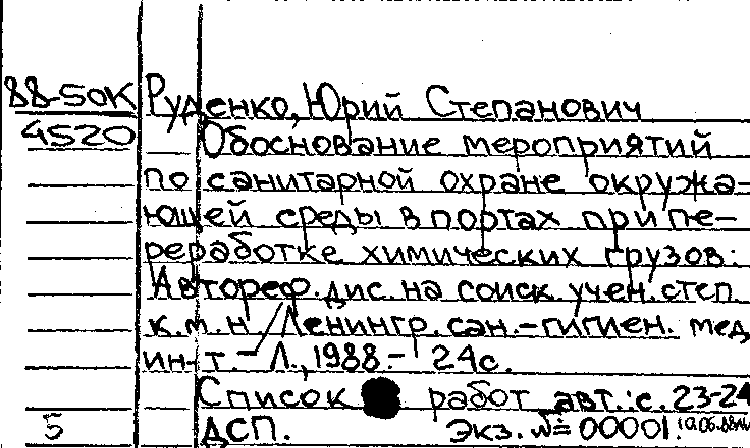 88-50К Руденко, Юрий Степанович
4520 Обоснование мероприятий
по санитарной охране окружа-
ющей среды в портах при пе-
реработке химических грузов:
Автореф. дис. на соиск. учен. степ.
к.м.н / Ленингр. сан.-гигиен. мед.
ин-т. - Л., 1988. - 24с.
Список работ авт.: с. 23-24
5 ДСП. Экз. № 00001